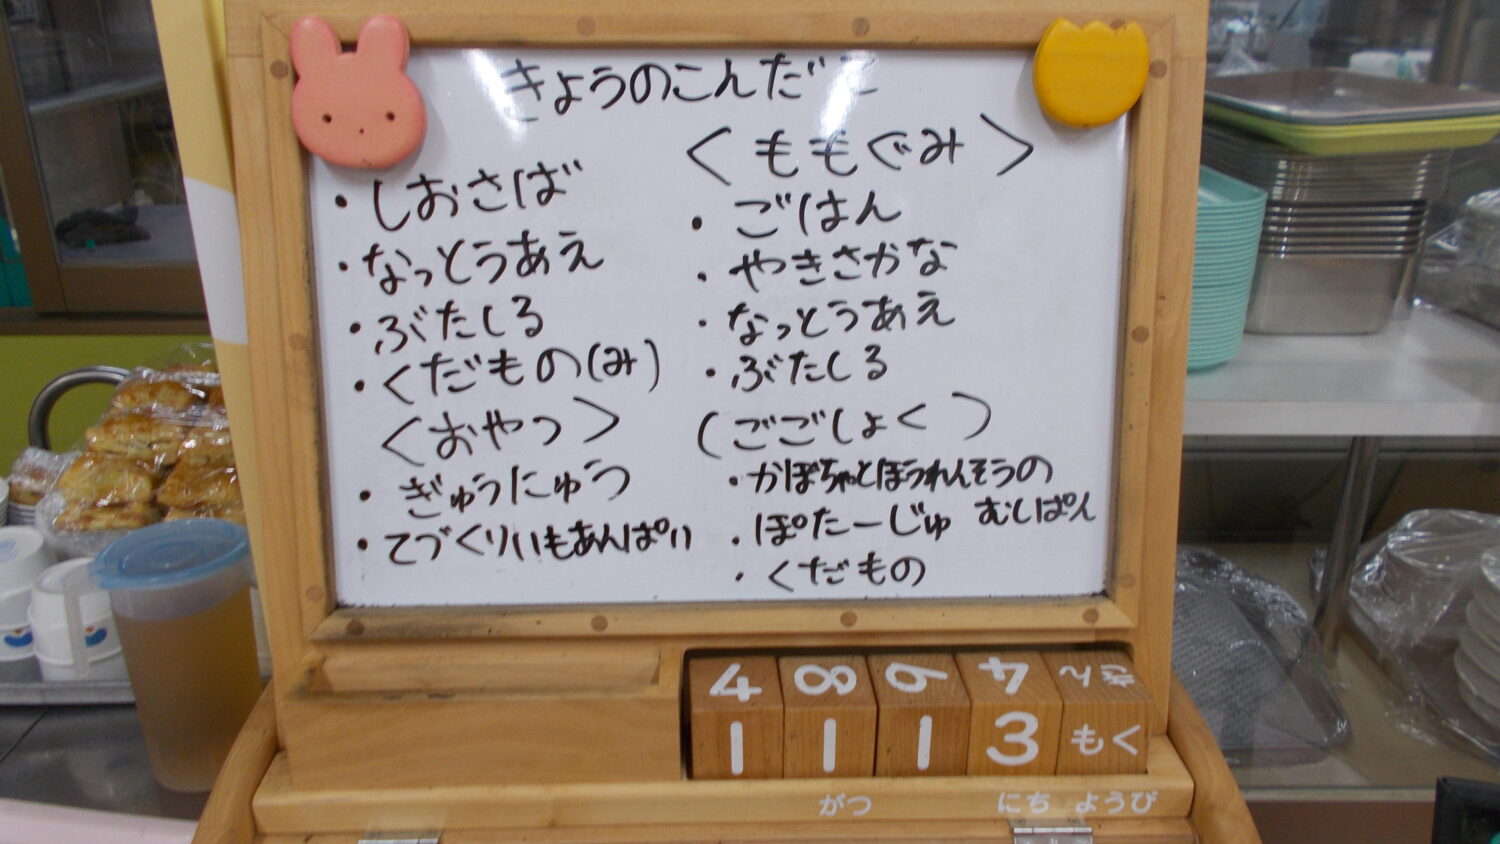 きょうのこんだて
・しおさば
・なっとうあえ
・ぶたしる
・くだもの(み)
＜おやつ＞
・ぎゅうにゅう
・てづくりいもあんぱい
＜ももぐみ＞
・ごはん
・やきさかな
・なっとうあえ
・ぶたしる
(ごごしょく)
・かぼちゃとほうれんそうの
むしぱん
・ぽたーじゅ
・くだもの
4 8 6 4
1 1 1 3 もく
がつ にち ようび